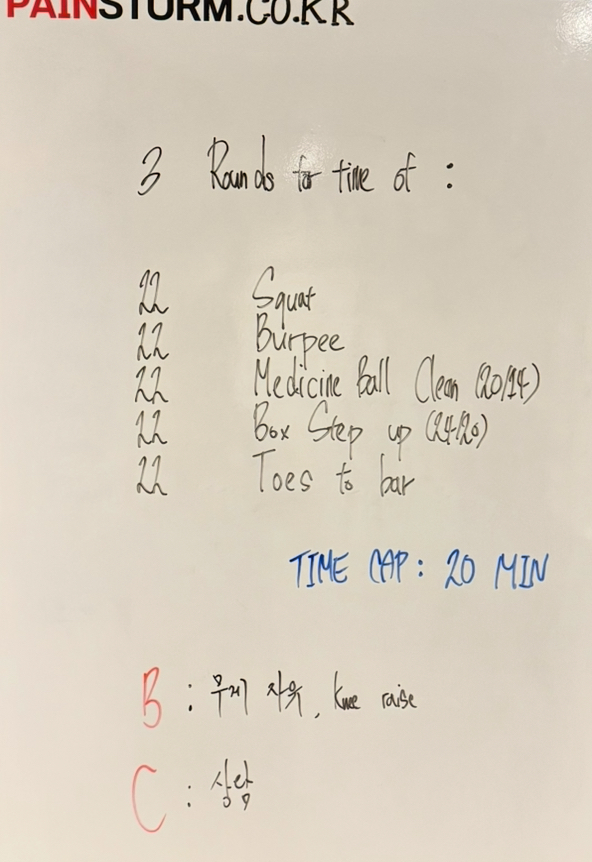 PAINSTORM.CO.KR
3 Rounds for time of :
22 Squat
22 Burpee
22 Medicine Ball Clean (20/14)
22 Box Step up (24/20)
22 Toes to bar
TIME CAP: 20 MIN
B : 무게 자유, knee raise
C : 상담